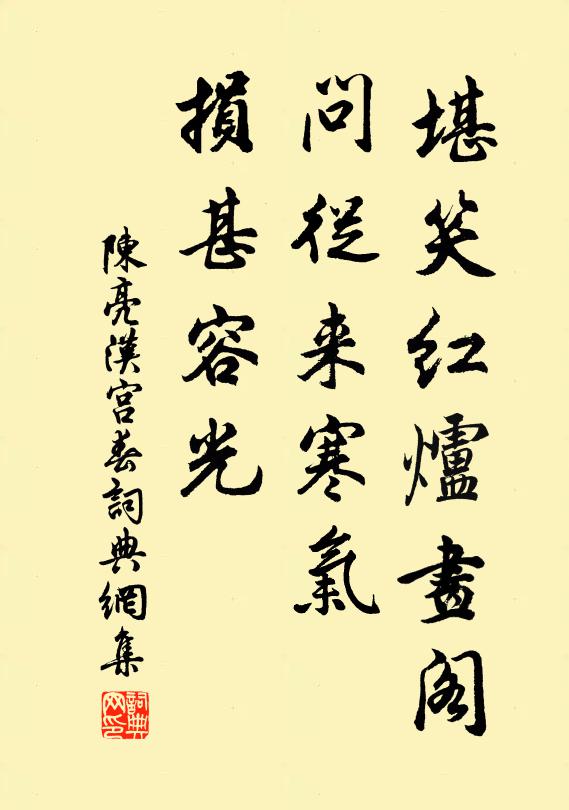 堪笑紅爐畫阁
問從来寒氣
損甚容光
陳亮漢宮春詞典網集
詞典网印